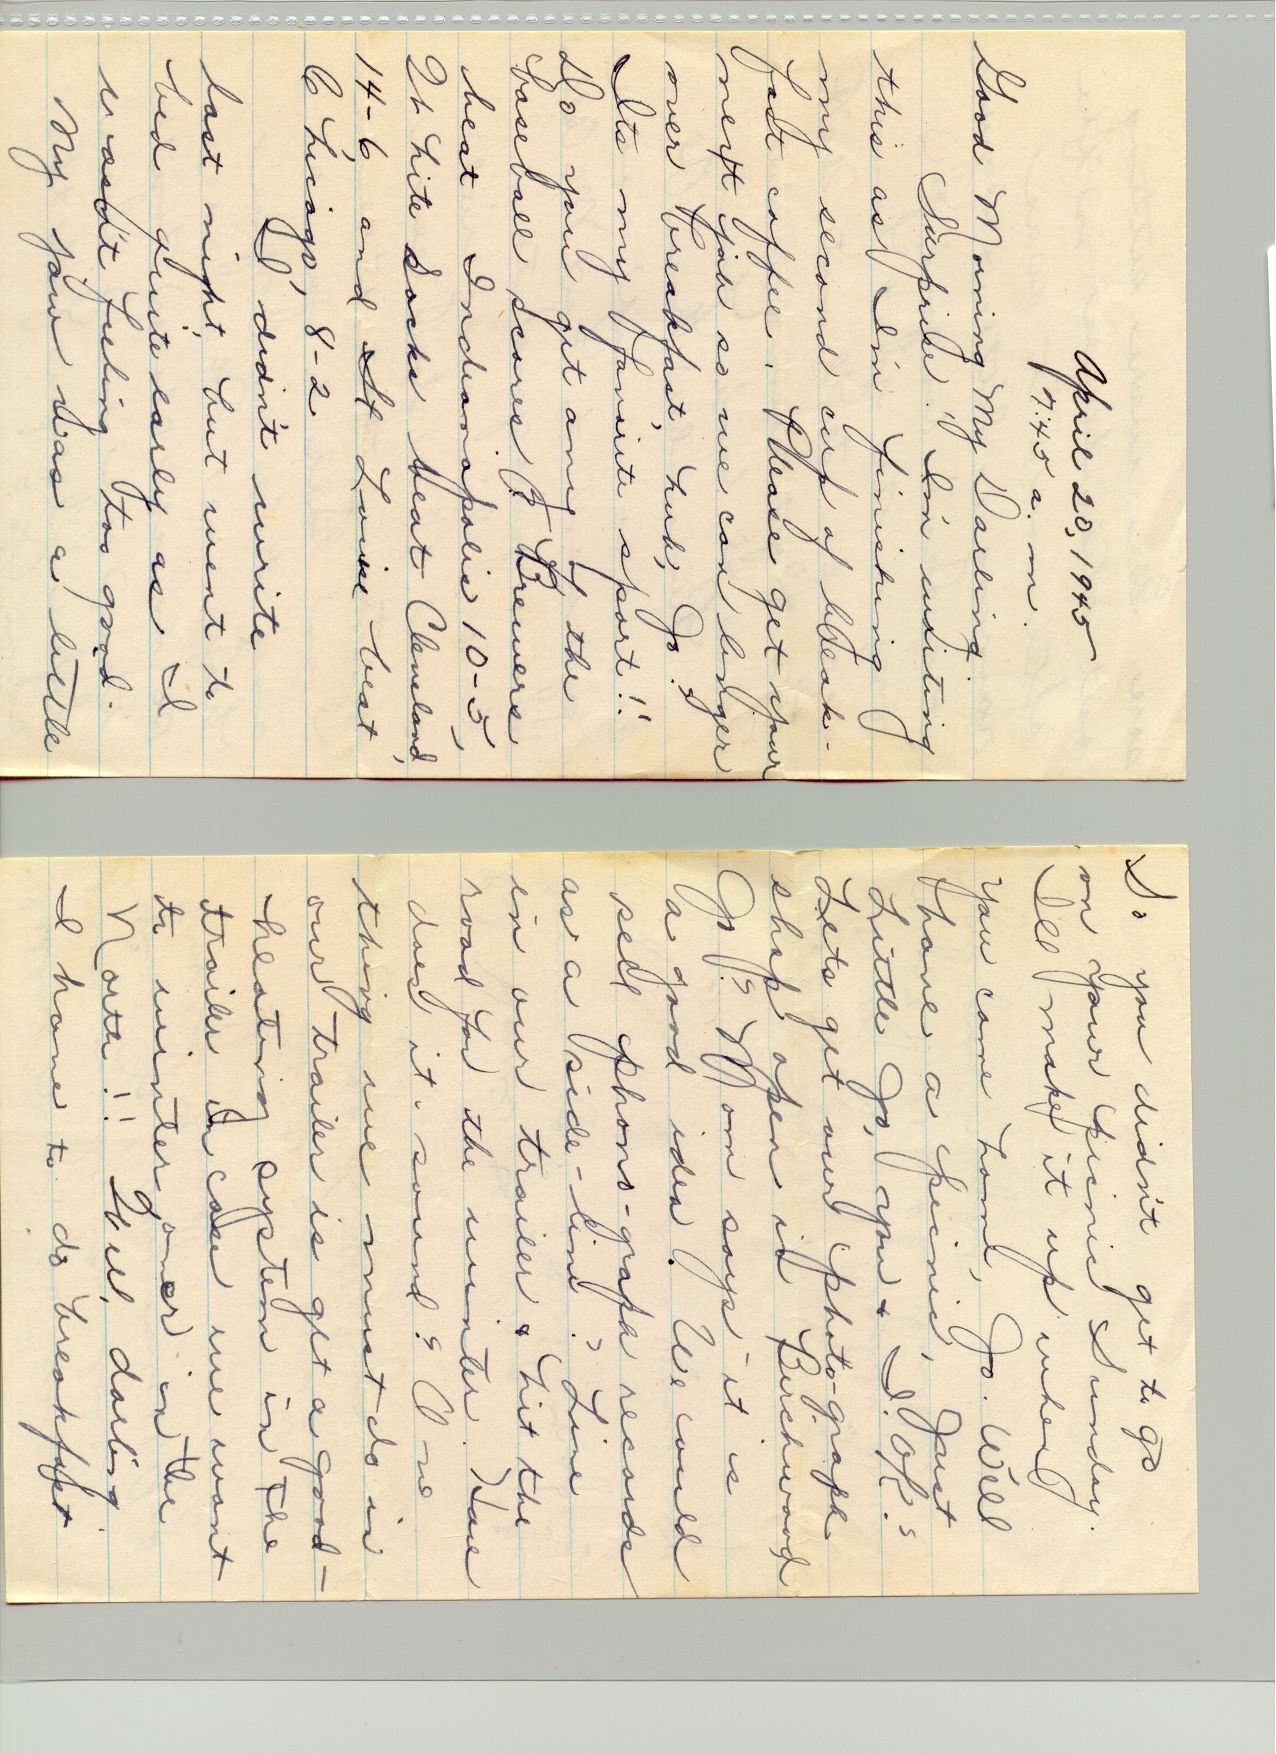 April 20, 1945
7:45 a.m.
Good Morning My Darling.
Surprise! I'm writing
this as I'm finishing
my second cup of break-
fast coffee. Please get your
next job so we can linger
over breakfast, huh, Jo.
Its my favorite sport!!
Do you get any of the
baseball scores? Brewers
beat Indianapolis 10-5,
White Socks beat Cleveland,
14-6 and St Louise beat
Chicago, 8-2
I didn't write
last night, but went to
bed quite early as I
wasn't feeling too good.
My jaw was a little
So you didn't get to go
on your picnic Sunday.
I'll make it up when
you come home, Jo. We'll
have a picnic, Just
Little Jo, you & I. OK?
Lets get our photo-graph
shop open in Birchwood
Jo? Mom says it is
a good idea. We could
sell phono-graph records
as a side-line? Live
in our trailer & hit the
road for the winter. How
does it sound? One
thing we must do in
our trailer is get a good-
heating system in the
trailer in case we want
to winter once in the
North!! Well, darling
I have to do breakfast